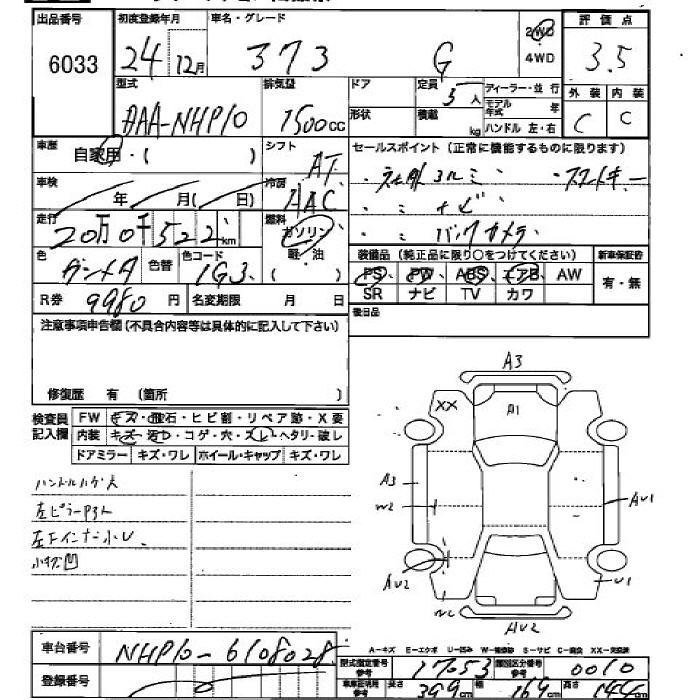 出品番号 初度登録年月 車名・グレード 評価点
6033 24年 12月 373 G 2WD 4WD 3.5
型式 排気量 ドア 定員 ディーラー・並行 外装 内装
DAA-NHP10 1500cc 形状 積載 kg 5人 モデル年式 年 ハンドル 左・右 C C
車歴 自家用・( ) シフト AT セールスポイント(正常に機能するものに限ります)
車検 年 月( 日) 冷房 AAC
走行 20万0千522km 燃料 ガソリン 軽・油
・〃 ナビ
・〃 バックカメラ
色 ガンメタ 色替 色コード 1G3 装備品(純正品に限り○をつけてください) 新車保証書
PS PW ABS エアB AW 有・無
R券 9980円 名変期限 月 日 SR ナビ TV カワ
注意事項申告欄(不具合内容等は具体的に記入して下さい) 後日品
修復歴 有 (箇所 )
検査員記入欄 FW キズ・飛石・ヒビ割・リペア跡・X要
内装 キズ・汚れ・コゲ・穴・スレ・ヘタリ・破レ
ドアミラー キズ・ワレ ホイール・キャップ キズ・ワレ
A3
XX A1
A3
W2 AU1
AU2 U1
W2 AU2
ハンドルハゲ大
左ピラーP3ト
左下インナー小U、
小キズ凹
車台番号 NHP10-6108028
登録番号
A-キズ E-エクボ U-凹み W-補修跡 S-サビ C-腐食 XX-交換済
型式指定番号 参考 17053 類別区分番号 参考 0010
車車証明用 参考 長さ 399cm 幅 169cm 高さ 144cm